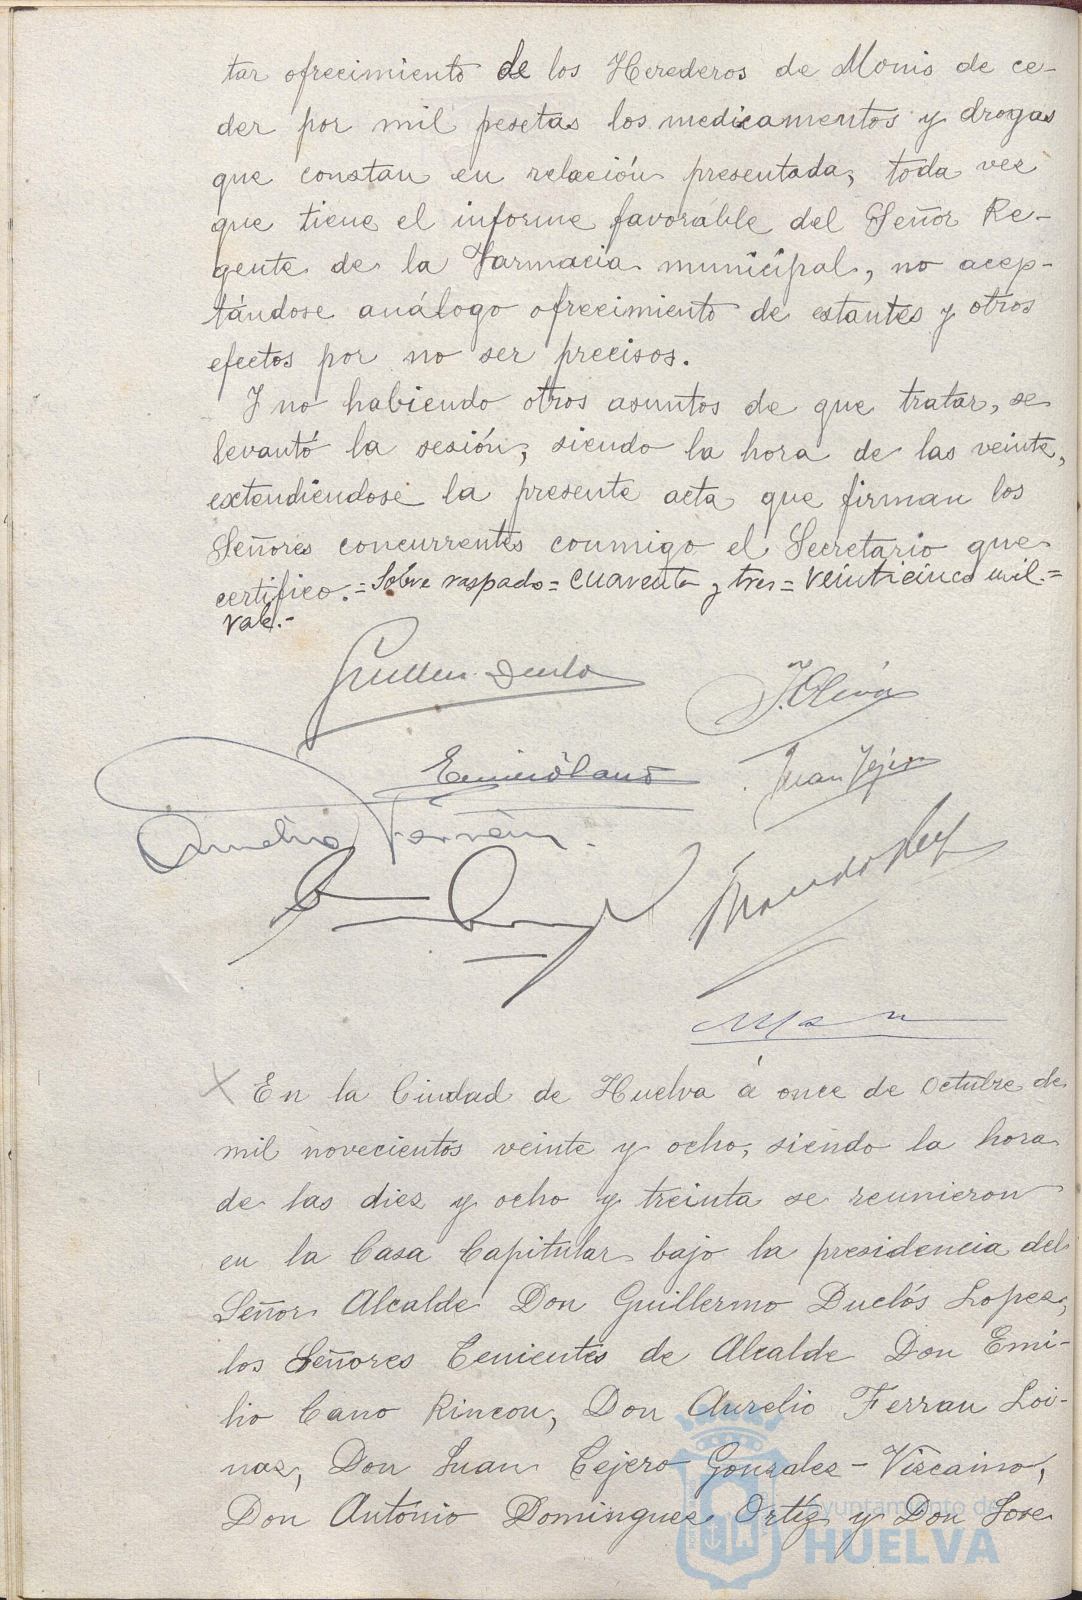 tar ofrecimiento de los Herederos de Monis de ce-
der por mil pesetas los medicamentos y drogas
que constan en relación presentada, toda vez
que tiene el informe favorable del Señor Re-
gente de la Farmacia municipal, no acep-
tándose análogo ofrecimiento de estantes y otros
efectos por no ser precisos.
Y no habiendo otros asuntos de que tratar, se
levantó la sesión, siendo la hora de las veinte,
extendiendose la presente acta que firman los
Señores concurrentes conmigo el Secretario que
certifico.=Sobre raspado=cuarenta y tres=veinticinco mil.=
vale.-
J. Oliva
Emilio Cano
Juan Tejero
Aurelio Ferrán
En la Ciudad de Huelva á once de Octubre de
mil novecientos veinte y ocho, siendo la hora
de las diez y ocho y treinta se reunieron
en la Casa Capitular bajo la presidencia del
Señor Alcalde Don Guillermo Duclós Lopez,
los Señores Tenientes de Alcalde Don Emi-
lio Cano Rincon, Don Aurelio Ferran Loi-
naz, Don Juan Tejero Gonzalez-Vizcaino,
Don António Dominguez Ortiz y Don Jose
ayuntamiento de
HUELVA